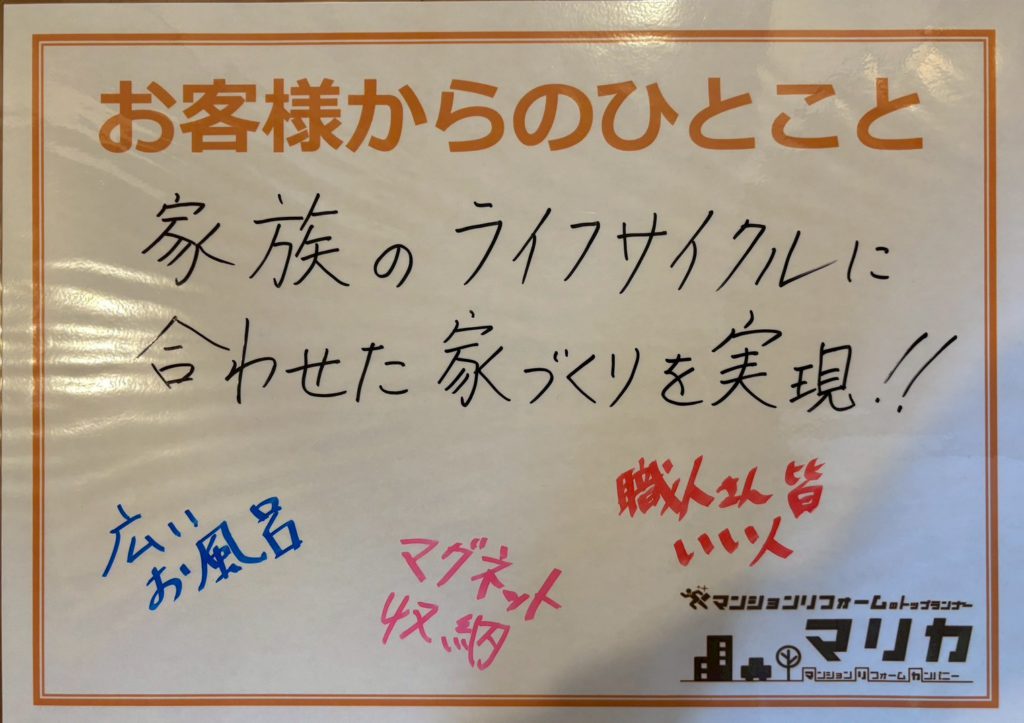 お客様からのひとこと
家族のライフサイクルに
合わせた家づくりを実現!!
広い
お風呂
マグネット
収納
職人さん皆
いい人
マンションリフォームのトップランナー
マリカ
マンションリフォームカンパニー